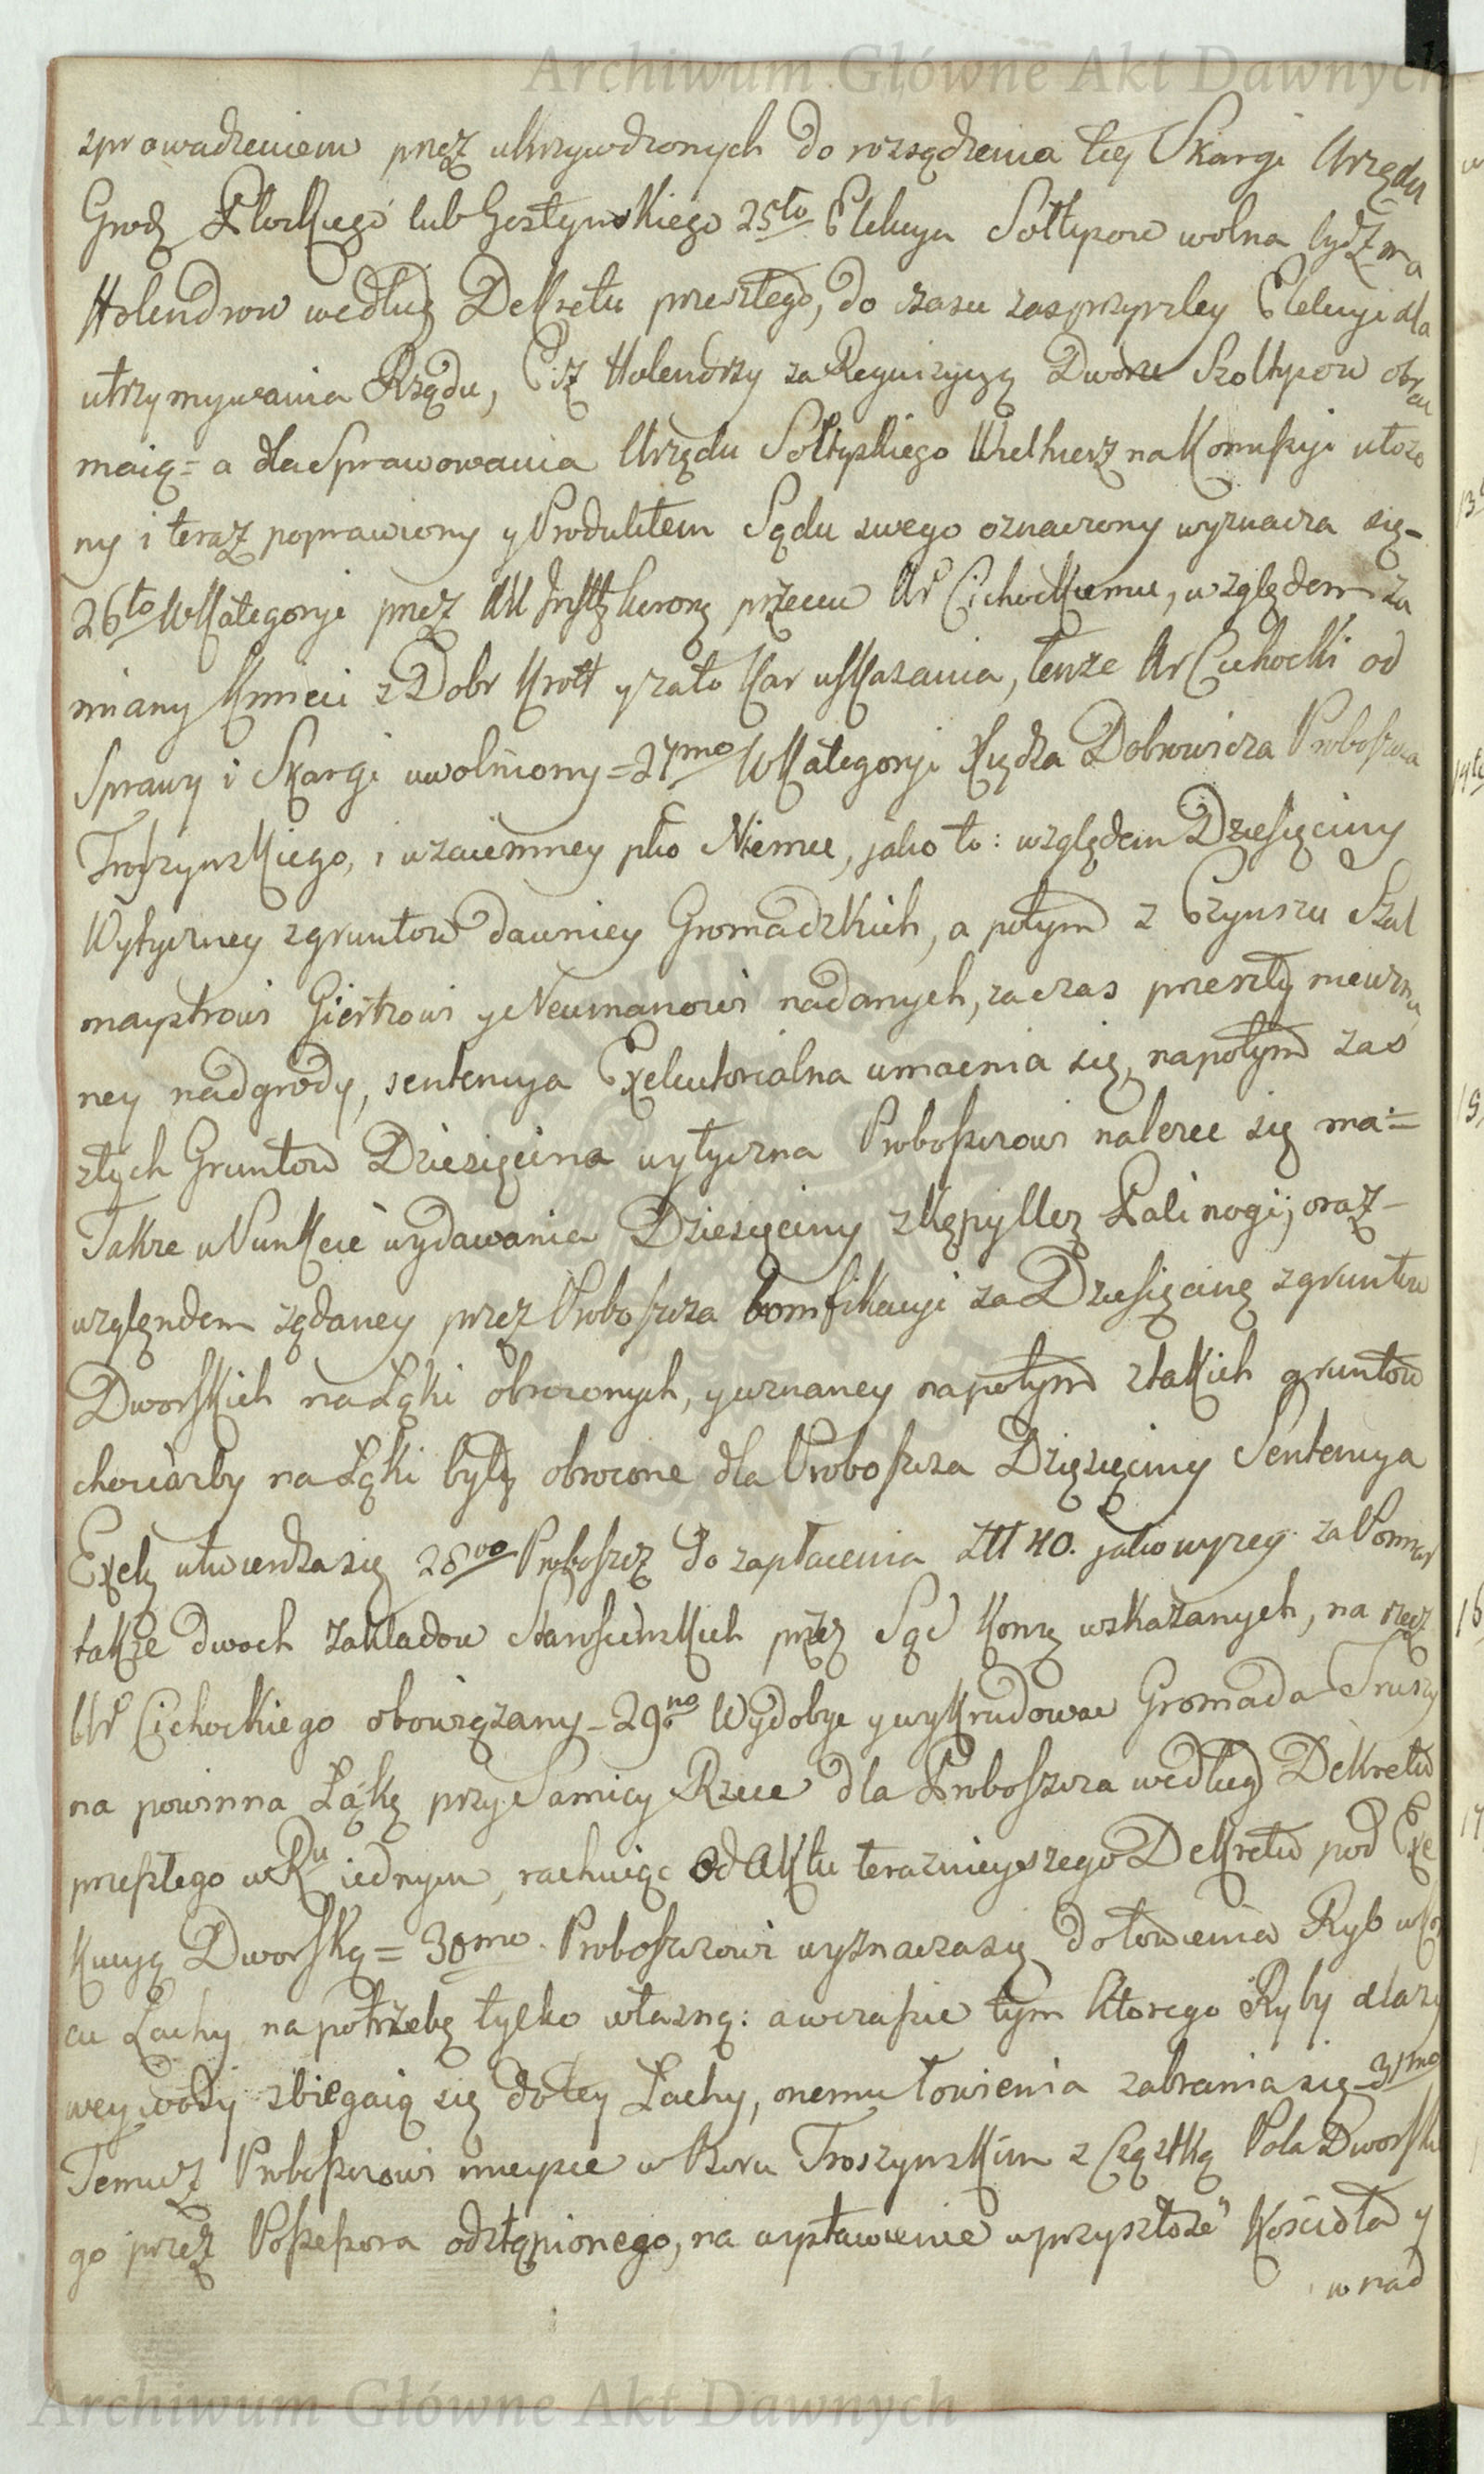 Archiwum Główne Akt Dawnych
zprowadzeniem przez ukrzywdzonych do rozsądzenia tey Skargi Urzędu
Grodz Płockiego lub Gostynskiego 25to Elekcya Sołtysow wolna bydz ma
Holendrow według Dekretu przeszłego, do czasu zas przyszley Elekcyi dla
utrzymywania Rządu, Ciz Holendrzy za Requizycyą Dworu Szołtysow obrac
maią = a dla Sprawowania Urzędu Sołtyskiego Wielkierz na Komissyi ułożo
ny i teraz poprawiony y Produktem Sądu swego oznaczony wyznacza się -
26to W Kategoryi przez przeciw Ur Cichockiemu, względem za
miany Kmieci z Dobr y zato Kar wskazania, tenze Ur Cichocki od
Sprawy i Skargi uwolniony = 27mo W Kategoryi Xiędza Dobrowicza Proboszcza
Troszynskiego, i wzaiemney pko Niemu, jako to: względem Dziesięciny
Wytyczney z gruntow dawniey Gromadzkich, a potym z Czynszu Szul
maystrowi y Neumanowi nadanych, za czas przeszły nieuzna
ney nadgrody, sentencya Exekutorialna umacnia się, napotym zas
z tych Gruntow Dziesięcina wytyczna Proboszczowi nalezec się ma =
Takze w Punkcie wydawania Dziesięciny z Kępy Palinogi; oraz -
względem ządaney przez Proboszcza bonifikacyi za Dziesięcinę z gruntow
Dworskich na Łąki obroconych, y uznaney napotym z takich gruntow
chociazby na Łąki były obrocone dla Proboszcza Dzięsięciny Sentencya
Exek utwierdza się 28vo Proboszcz do zapłacenia Złł 40. jako wyżey za Pomiar
takze dwoch zakładow Staroscinskich przez Sąd Kom wskazanych, na rzecz
Ur Cichockiego obowiązany - 29no Wydobyc y wykrudowac Gromada Troszy
na powinna Łąkę przy Samicy Rzece dla Proboszcza według Dekretu
przeszłego w Ru iednym, rachuiąc od Aktu teraznieyszego Dekretu pod Exe
kucyą Dworską = 30mo Proboszczowi wyznacza się do łowienia Ryb w Kon
cu Łachy na potrzebę tylko własną: a w czasie tym ktorego Ryby dla
wey wody zbiegaią się do tey Łachy, onemu łowienia zabrania się - 31mo
Temuz Proboszczowi mieysce w Boru Troszynskim z Cząstką Pola Dworskie
go przez Possessora odstąpionego, na wystawienie w przyszłosć Kościoła y
w nad
Archiwum Główne Akt Dawnych